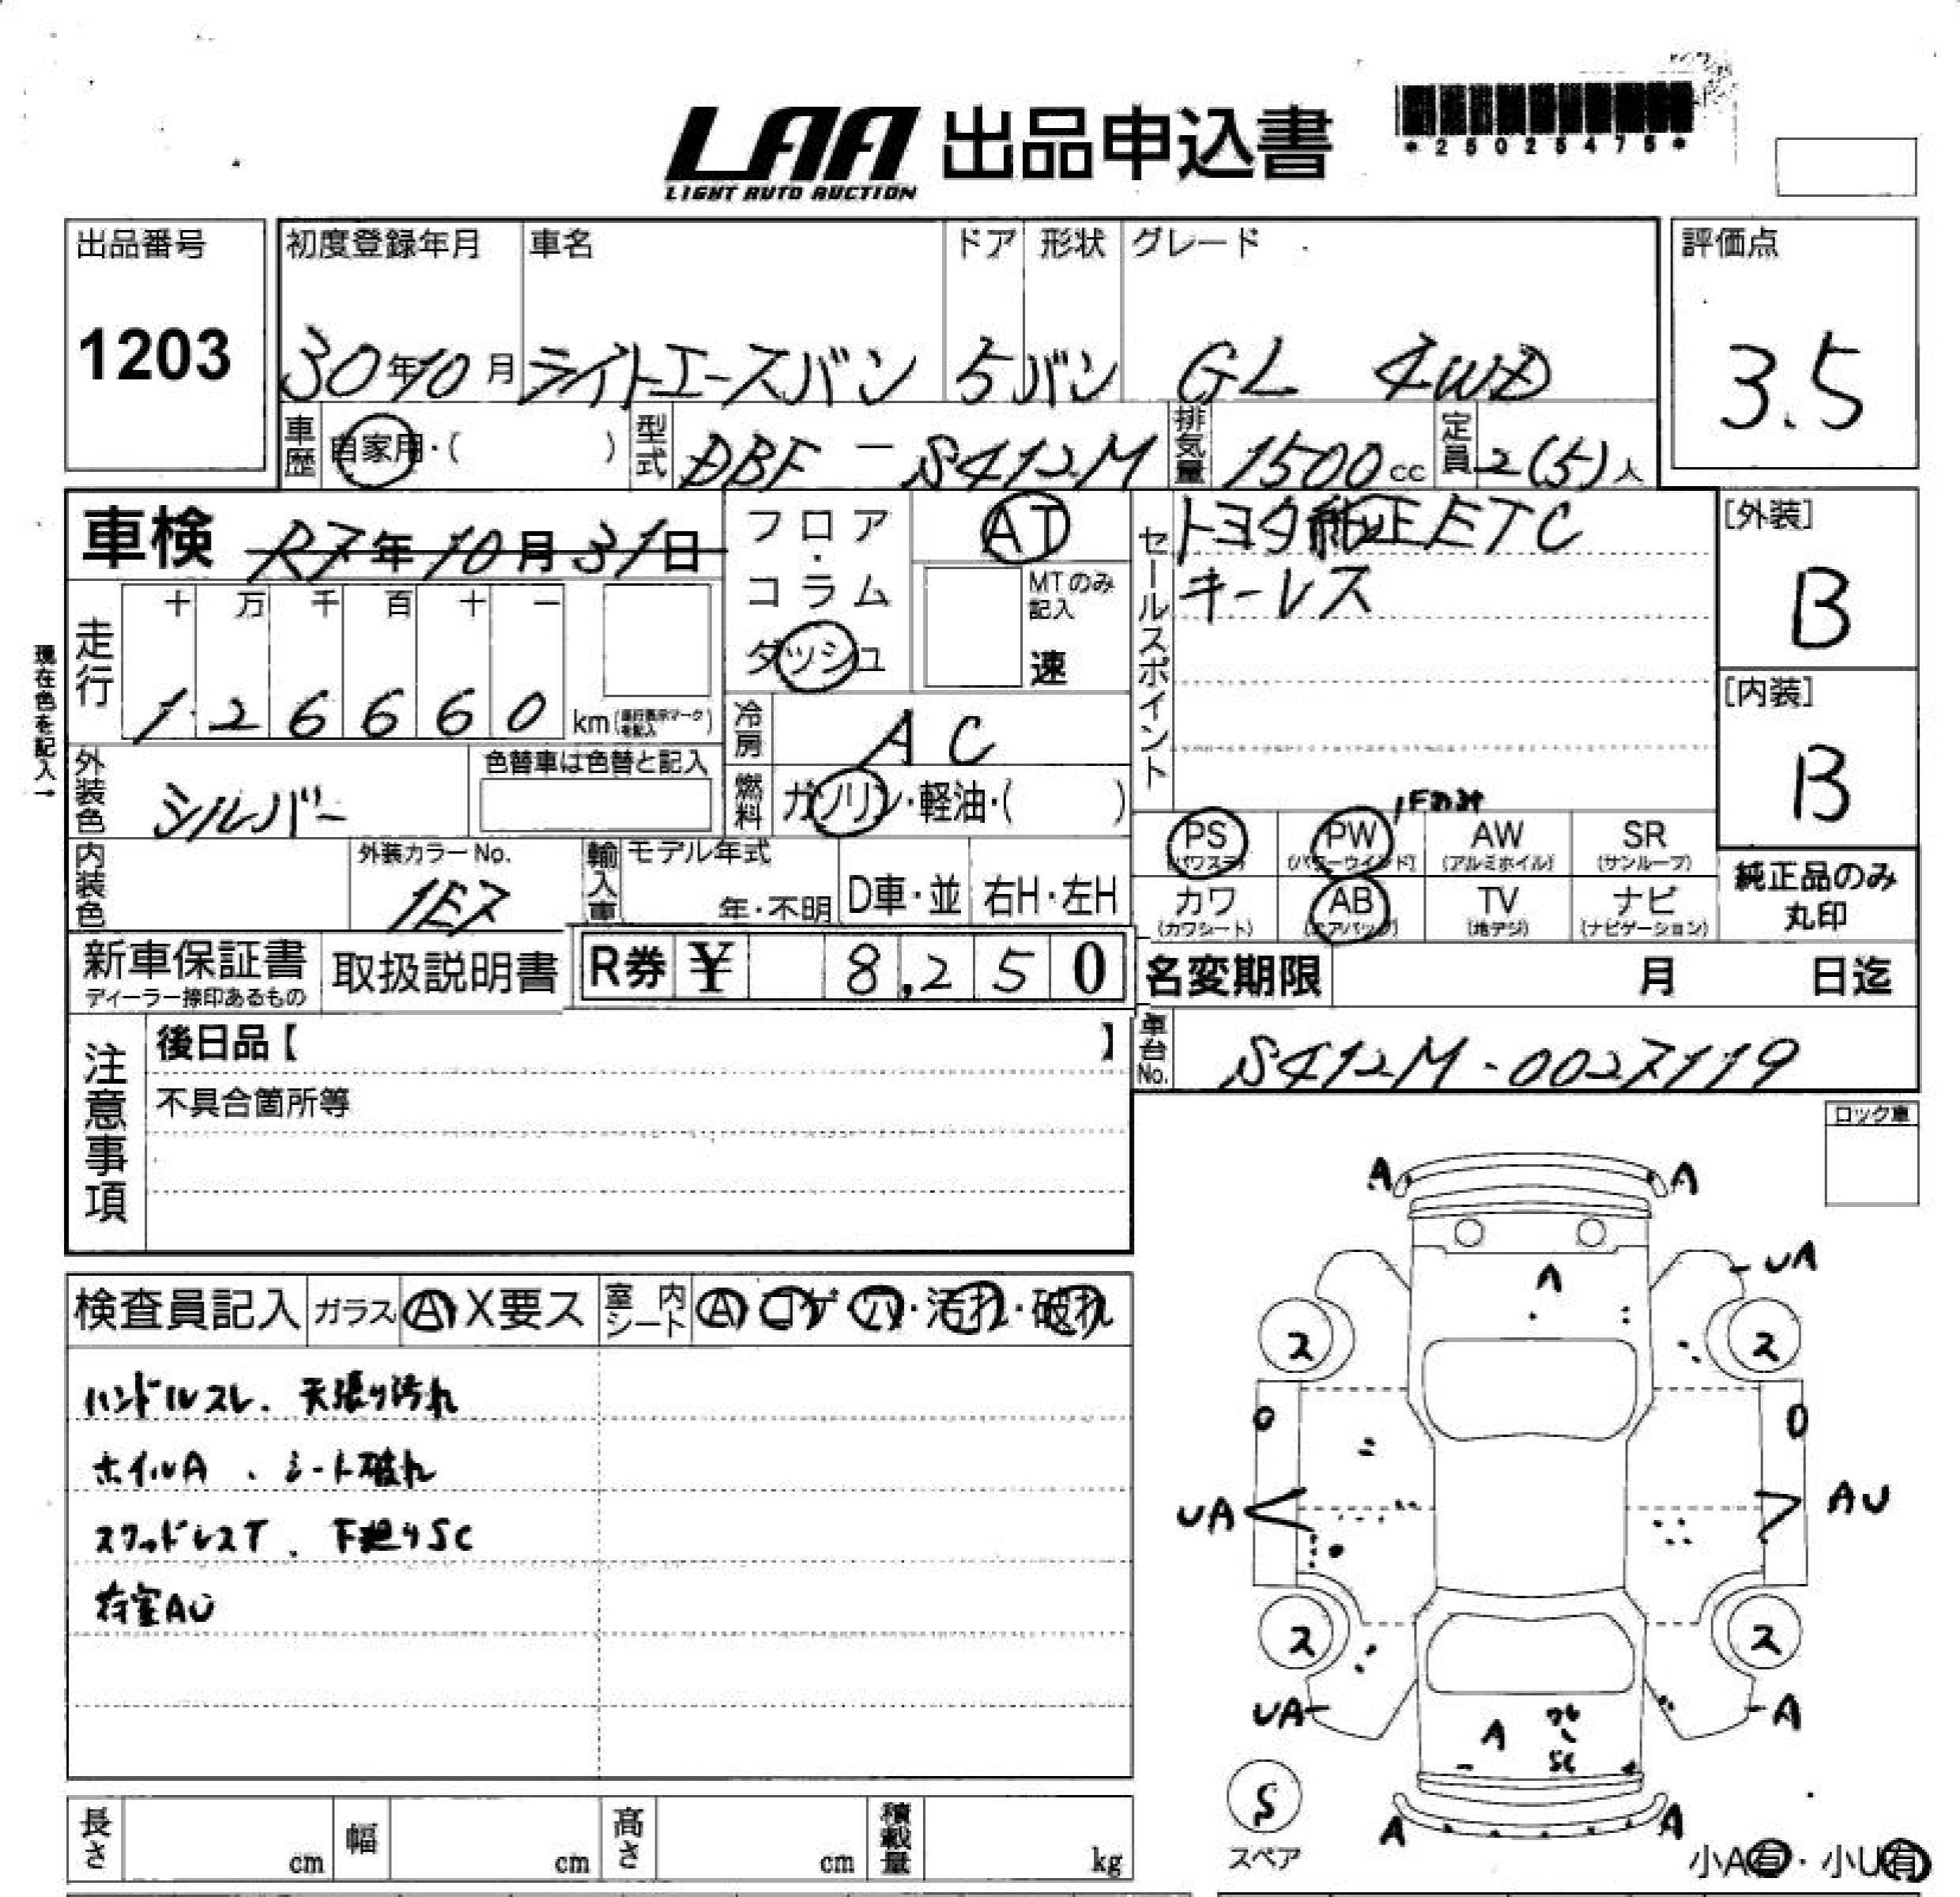 LAA 出品申込書
LIGHT AUTO AUCTION
*25025475*
出品番号 初度登録年月 車名 ドア 形状 グレード 評価点
1203 30年10月 ライトエースバン 5 バン GL 4WD 3.5
車歴 自家用・( ) 型式 DBF-S412M 排気量 1500cc 定員 2(5)人
車検 R7年10月31日 フロア・コラム ダッシュ AT
MTのみ記入 速
セールスポイント トヨタ純正ETC
キーレス
[外装] B
現在色を記入→
走行 十 万 千 百 十 一
1 2 6 6 6 0 km
[内装] B
冷房 AC
外装色 シルバー 色替車は色替と記入 燃料 ガソリン・軽油・( )
Fのみ
PS (パワステ) PW (パワーウインド) AW (アルミホイル) SR (サンルーフ)
内装色 外装カラーNo. 1E7 輸入車 モデル年式 年・不明 D車・並 右H・左H
カワ (カワシート) AB (エアバッグ) TV (地デジ) ナビ (ナビゲーション)
純正品のみ丸印
新車保証書 ディーラー捺印あるもの 取扱説明書 R券 ¥ 8,250 名変期限 月 日迄
注意事項 後日品【 】 車台No. S412M-0027119
不具合箇所等
ロック車
検査員記入 ガラス A X要ス 室内シート A コゲ 穴・汚れ・破れ
ハンドルスレ、天張り汚れ
ホイルA、シート破れ
スタッドレスT、下廻りSC
荷室AU
A A
A UA
2 2
0 0
UA AU
2 2
UA A
A ワレ SC
S
スペア
A A
小A有・小U有
長さ cm 幅 cm 高さ cm 積載量 kg